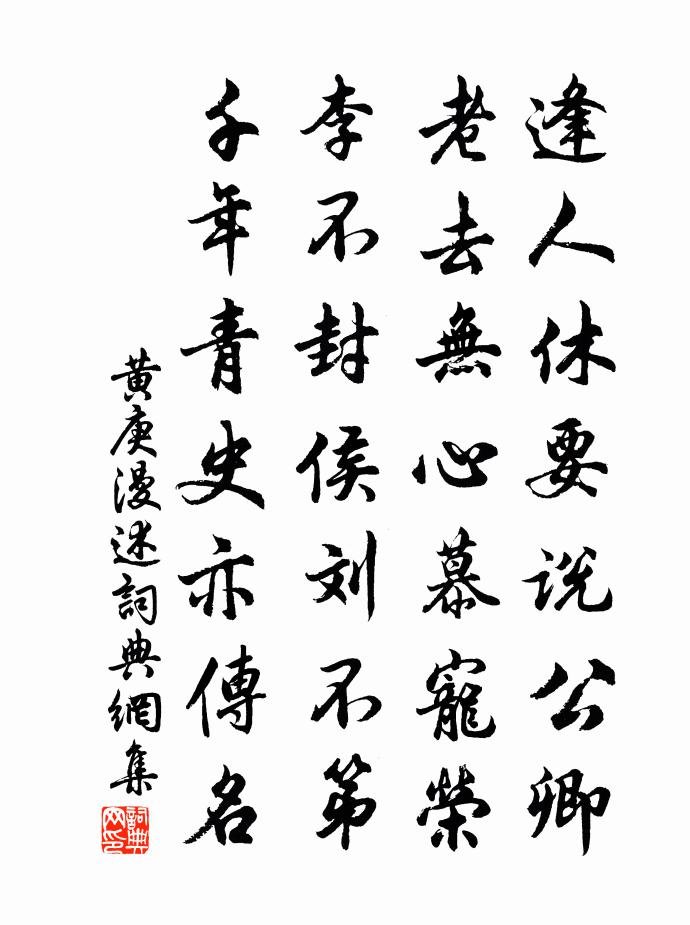 逢人休要説公卿
老去無心慕寵榮
李不封侯刘不第
千年青史亦傳名
黄庚漫述詞典網集
詞典网印